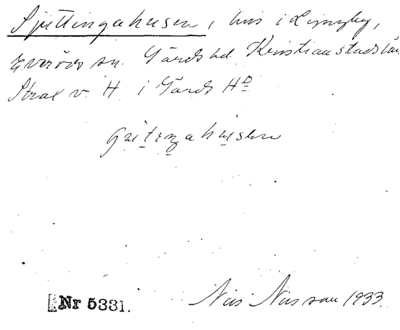 Sjuttingahusen, hus i Lyngby,
Everöds sn. Gärds hd. Kristianstads län
Strax v. H. i Gärds Hd
husen
Nr 5331.
Nils Nilsson 1933.